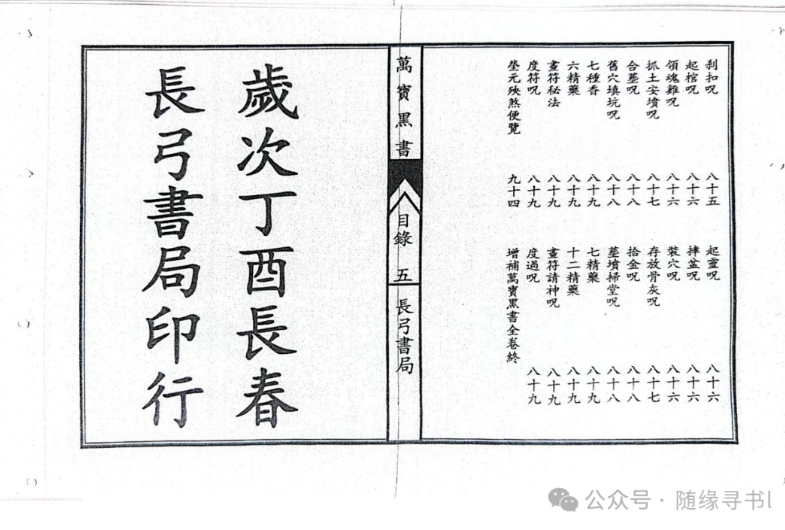 刹扣呪　八十五
起棺呪　八十六
領魂雞呪　八十六
抓土安墳呪　八十七
合墓呪　八十八
舊穴填坑呪　八十八
七種香　八十九
六精藥　八十九
畫符秘法　八十九
度符呪　八十九
塋元殃煞便覽　九十四
起靈呪　八十六
摔盆呪　八十六
裝穴呪　八十六
存放骨灰呪　八十七
拾金呪　八十八
墓墳掃堂呪　八十八
七精藥　八十九
十二精藥　八十九
畫符請神呪　八十九
度過呪　八十九
增補萬寶黑書全卷終
萬寶黑書
目錄　五
長弓書局
歲次丁酉長春
長弓書局印行
公众号·随缘寻书l